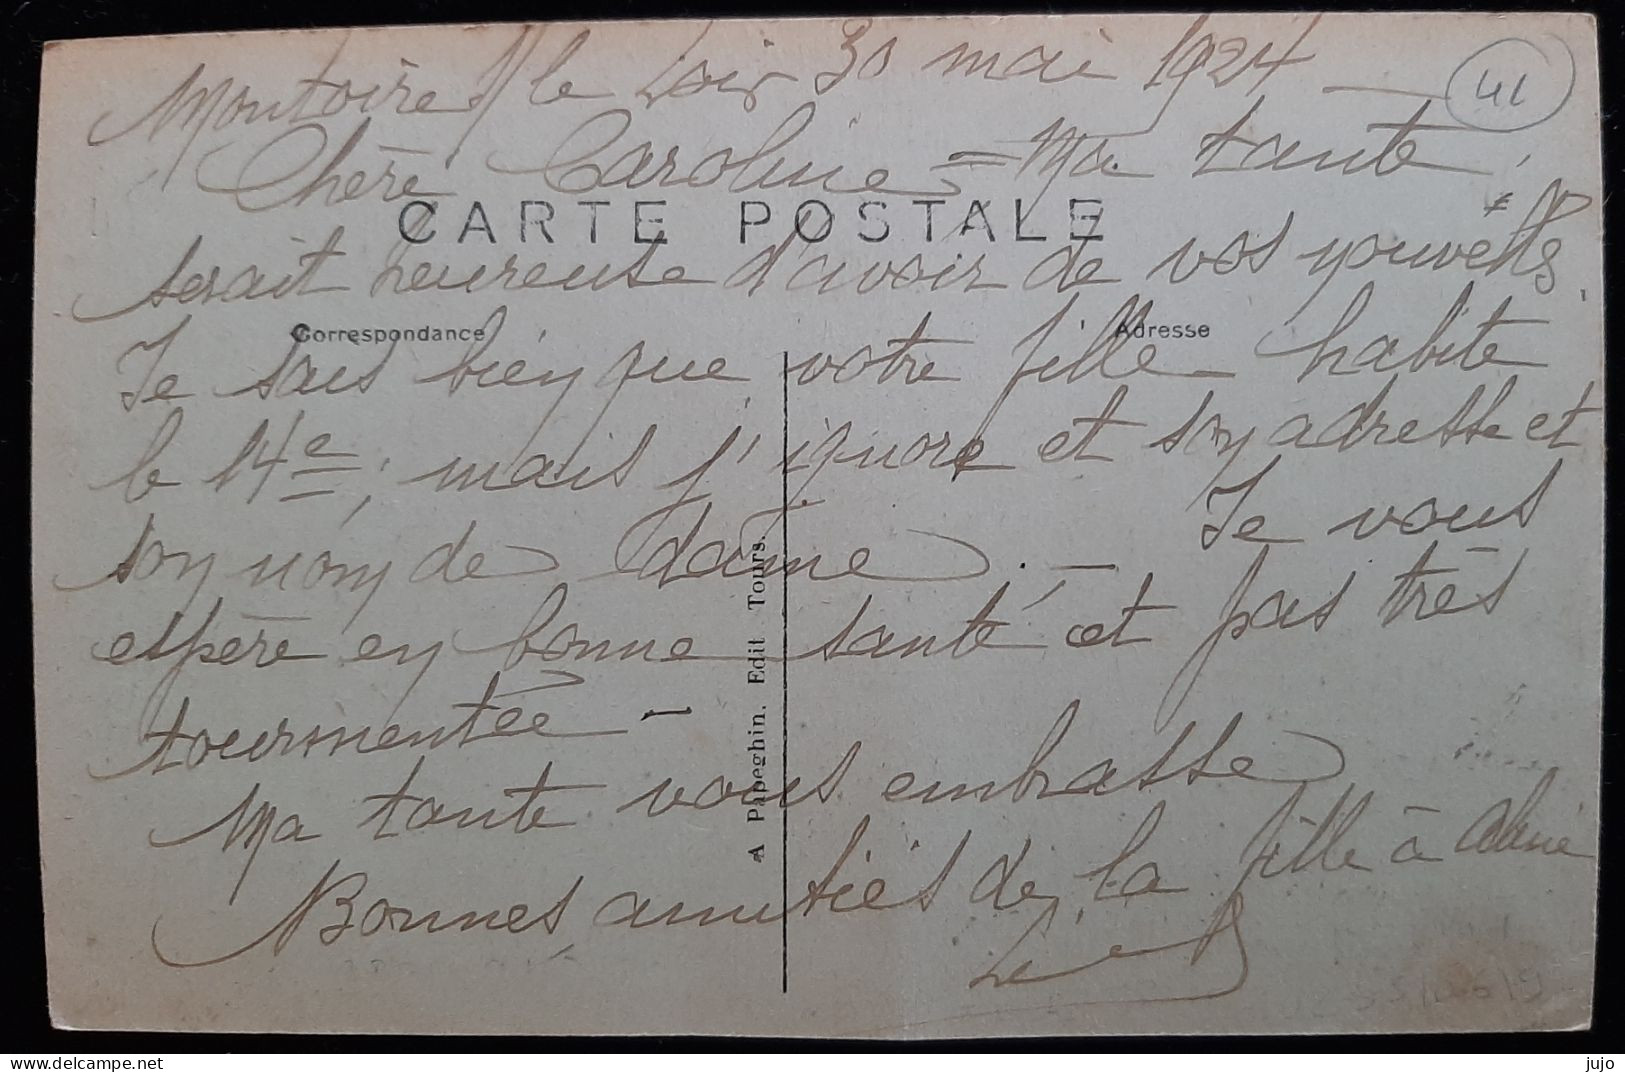 Montoire s/ le Loir 30 mai 1924
41
Chère Caroline = Ma tante
CARTE POSTALE
serait heureuse d'avoir de vos nouvelles.
Correspondance
Adresse
Je sais bien que votre fille habite
le 14e; mais j'ignore et son adresse et
son nom de dame. — Je vous
espère en bonne santé et pas très
tourmentée —
A Papeghin. Edit Tours.
Ma tante vous embrasse
Bonnes amitiés de la fille à
jujo